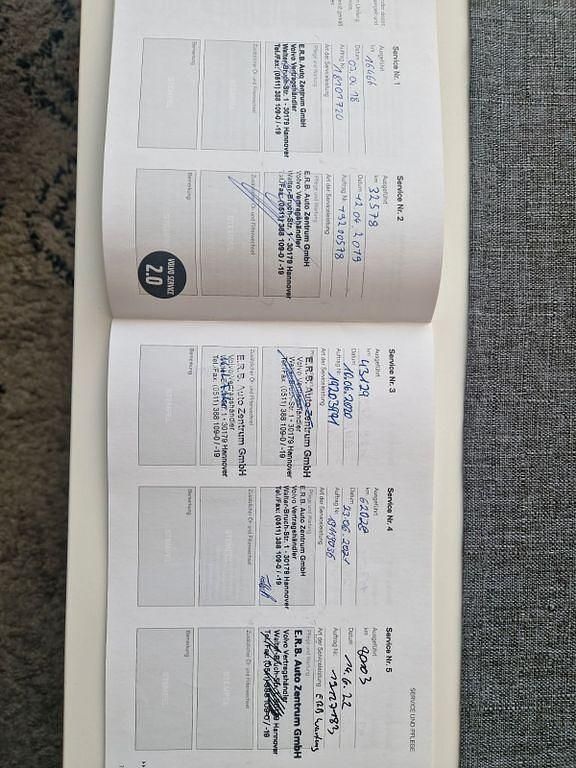 Service Nr. 1
Ausgeführt
km 16466
Datum 02.04.18
Auftrag Nr. 18101720
Art der Serviceleistung
Pflege und Wartung
E.R.B. Auto Zentrum GmbH
Volvo Vertragshändler
Walter-Bruch-Str. 1 · 30179 Hannover
Tel./Fax: (0511) 388 109-0 / -19
Zusätzlicher Öl- und Filterwechsel
Bemerkung
Service Nr. 2
Ausgeführt
km 32578
Datum 12.04.2019
Auftrag Nr. 19200578
Art der Serviceleistung
Pflege und Wartung
E.R.B. Auto Zentrum GmbH
Volvo Vertragshändler
Walter-Bruch-Str. 1 · 30179 Hannover
Tel./Fax: (0511) 388 109-0 / -19
Zusätzlicher Öl- und Filterwechsel
Bemerkung
VOLVO SERVICE
2.0
SERVICE UND PFLEGE
Service Nr. 3
Ausgeführt
km 43129
Datum 16.06.2020
Auftrag Nr.
Art der Serviceleistung
Pflege und Wartung
E.R.B. Auto Zentrum GmbH
Volvo Vertragshändler
Walter-Bruch-Str. 1 · 30179 Hannover
Tel./Fax: (0511) 388 109-0 / -19
Zusätzlicher Öl- und Filterwechsel
E.R.B. Auto Zentrum GmbH
Volvo Vertragshändler
30179 Hannover
Tel./Fax: (0511) 388 109-0 / -19
Bemerkung
Service Nr. 4
Ausgeführt
km 62028
Datum 23.06.2021
Auftrag Nr.
Art der Serviceleistung
Pflege und Wartung
E.R.B. Auto Zentrum GmbH
Volvo Vertragshändler
Walter-Bruch-Str. 1 · 30179 Hannover
Tel./Fax: (0511) 388 109-0 / -19
Zusätzlicher Öl- und Filterwechsel
Bemerkung
Service Nr. 5
Ausgeführt
km
Datum 14.6.22
Auftrag Nr.
Art der Serviceleistung
Pflege und Wartung
E.R.B. Auto Zentrum GmbH
Volvo Vertragshändler
Hannover
Zusätzlicher Öl- und Filterwechsel
Bemerkung